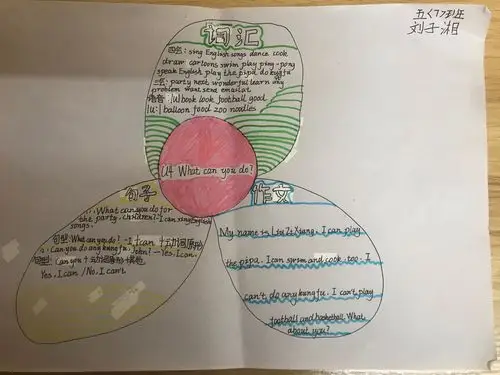 五(7)班
刘子湘
词汇
四会: sing English songs dance cook
draw cartoons swim play ping-pong
speak English play the pipa do kung fu
party next wonderful learn any
problem want send email at
语音: |u| book look football good
|u:| balloon food zoo noodles
U4 What can you do?
句子
What can you do for
the party, children? I can sing English
songs.
句型: What can you do? -I can+
Can you do any kung fu, -Yes, I can.
Can you +
Yes, I can / No, I can't
作文
My name is Liu Zi Xiang. I can play
the pipa. I can swim and cook, too. I
can't do any kung fu. I can't play
football and basketball. What
about you?